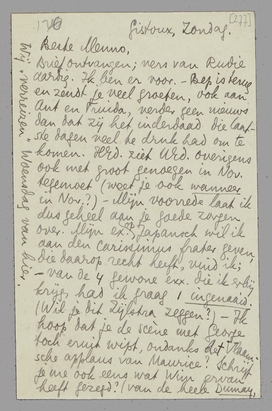 Gistoux, Zondag.
[277]
Beste Menno,
Brief ontvangen; vers van Rudie
aardig. Ik ben er voor. – Bep is terug
en zendt je veel groeten, ook aan
Ant en Truida, verder geen nieuws
dan dat zij het inderdaad die laat-
ste dagen veel te druk had om te
komen. H.Gr. ziet W.Gr. overigens
ook met groot genoegen in Nov.
tegemoet (weet je ook wanneer
in Nov.?) – Mijn voorrede laat ik
dus geheel aan je goede zorgen
over. Mijn ex. op Japansch wil ik
aan den carissimus frater geven,
die daarop recht heeft, vind ik;
– van de 4 gewone exx. die ik erbij
krijg, had ik graag 1 ingenaaid.
(Wil je dit Zijlstra zeggen?) – Ik
hoop dat je de scène met George
toch eruit wipt, ondanks het
applaus van Maurice! Schrijf
je me ook eens wat Wijn ervan
heeft gezegd? (van de heele Dumay,
Wij verreizen Woensdag van hier.